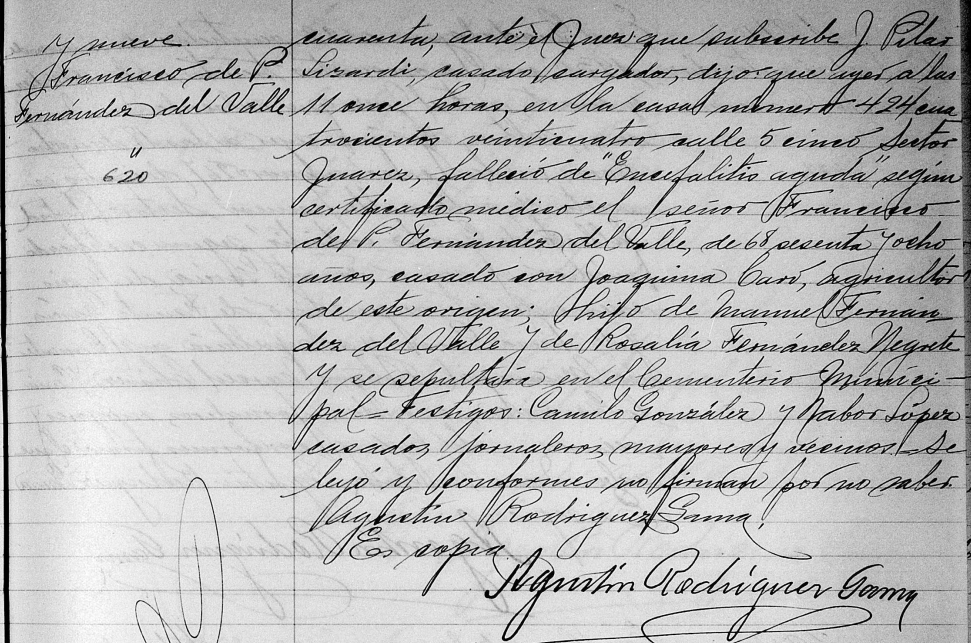 y nueve.
Francisco de P.
Fernández del Valle
"
620
cuarenta, ante el Juez que subscribe J. Pilar
Lizardi, casado cargador, dijo que ayer a las
11 once horas, en la casa número 424 cua
trocientos veinticuatro calle 5 cinco Sector
Juarez, falleció de "Encefalitis aguda" según
certificado médico el señor Francisco
de P. Fernández del Valle, de 68 sesenta y ocho
anos, casado con Joaquina Caró, agricultor
de este origen; Hijo de Manuel Fernán-
dez del Valle y de Rosalía Fernández Negrete
y se sepultara en el Cementerio Munici-
pal = Testigos: Camilo González y Nabor López
casados, jornaleros mayores y vecinos. = Se
leyó y conformes no firman por no saber.
Agustín Rodriguez Gama.
Es copia
Agustín Rodríguez Gama